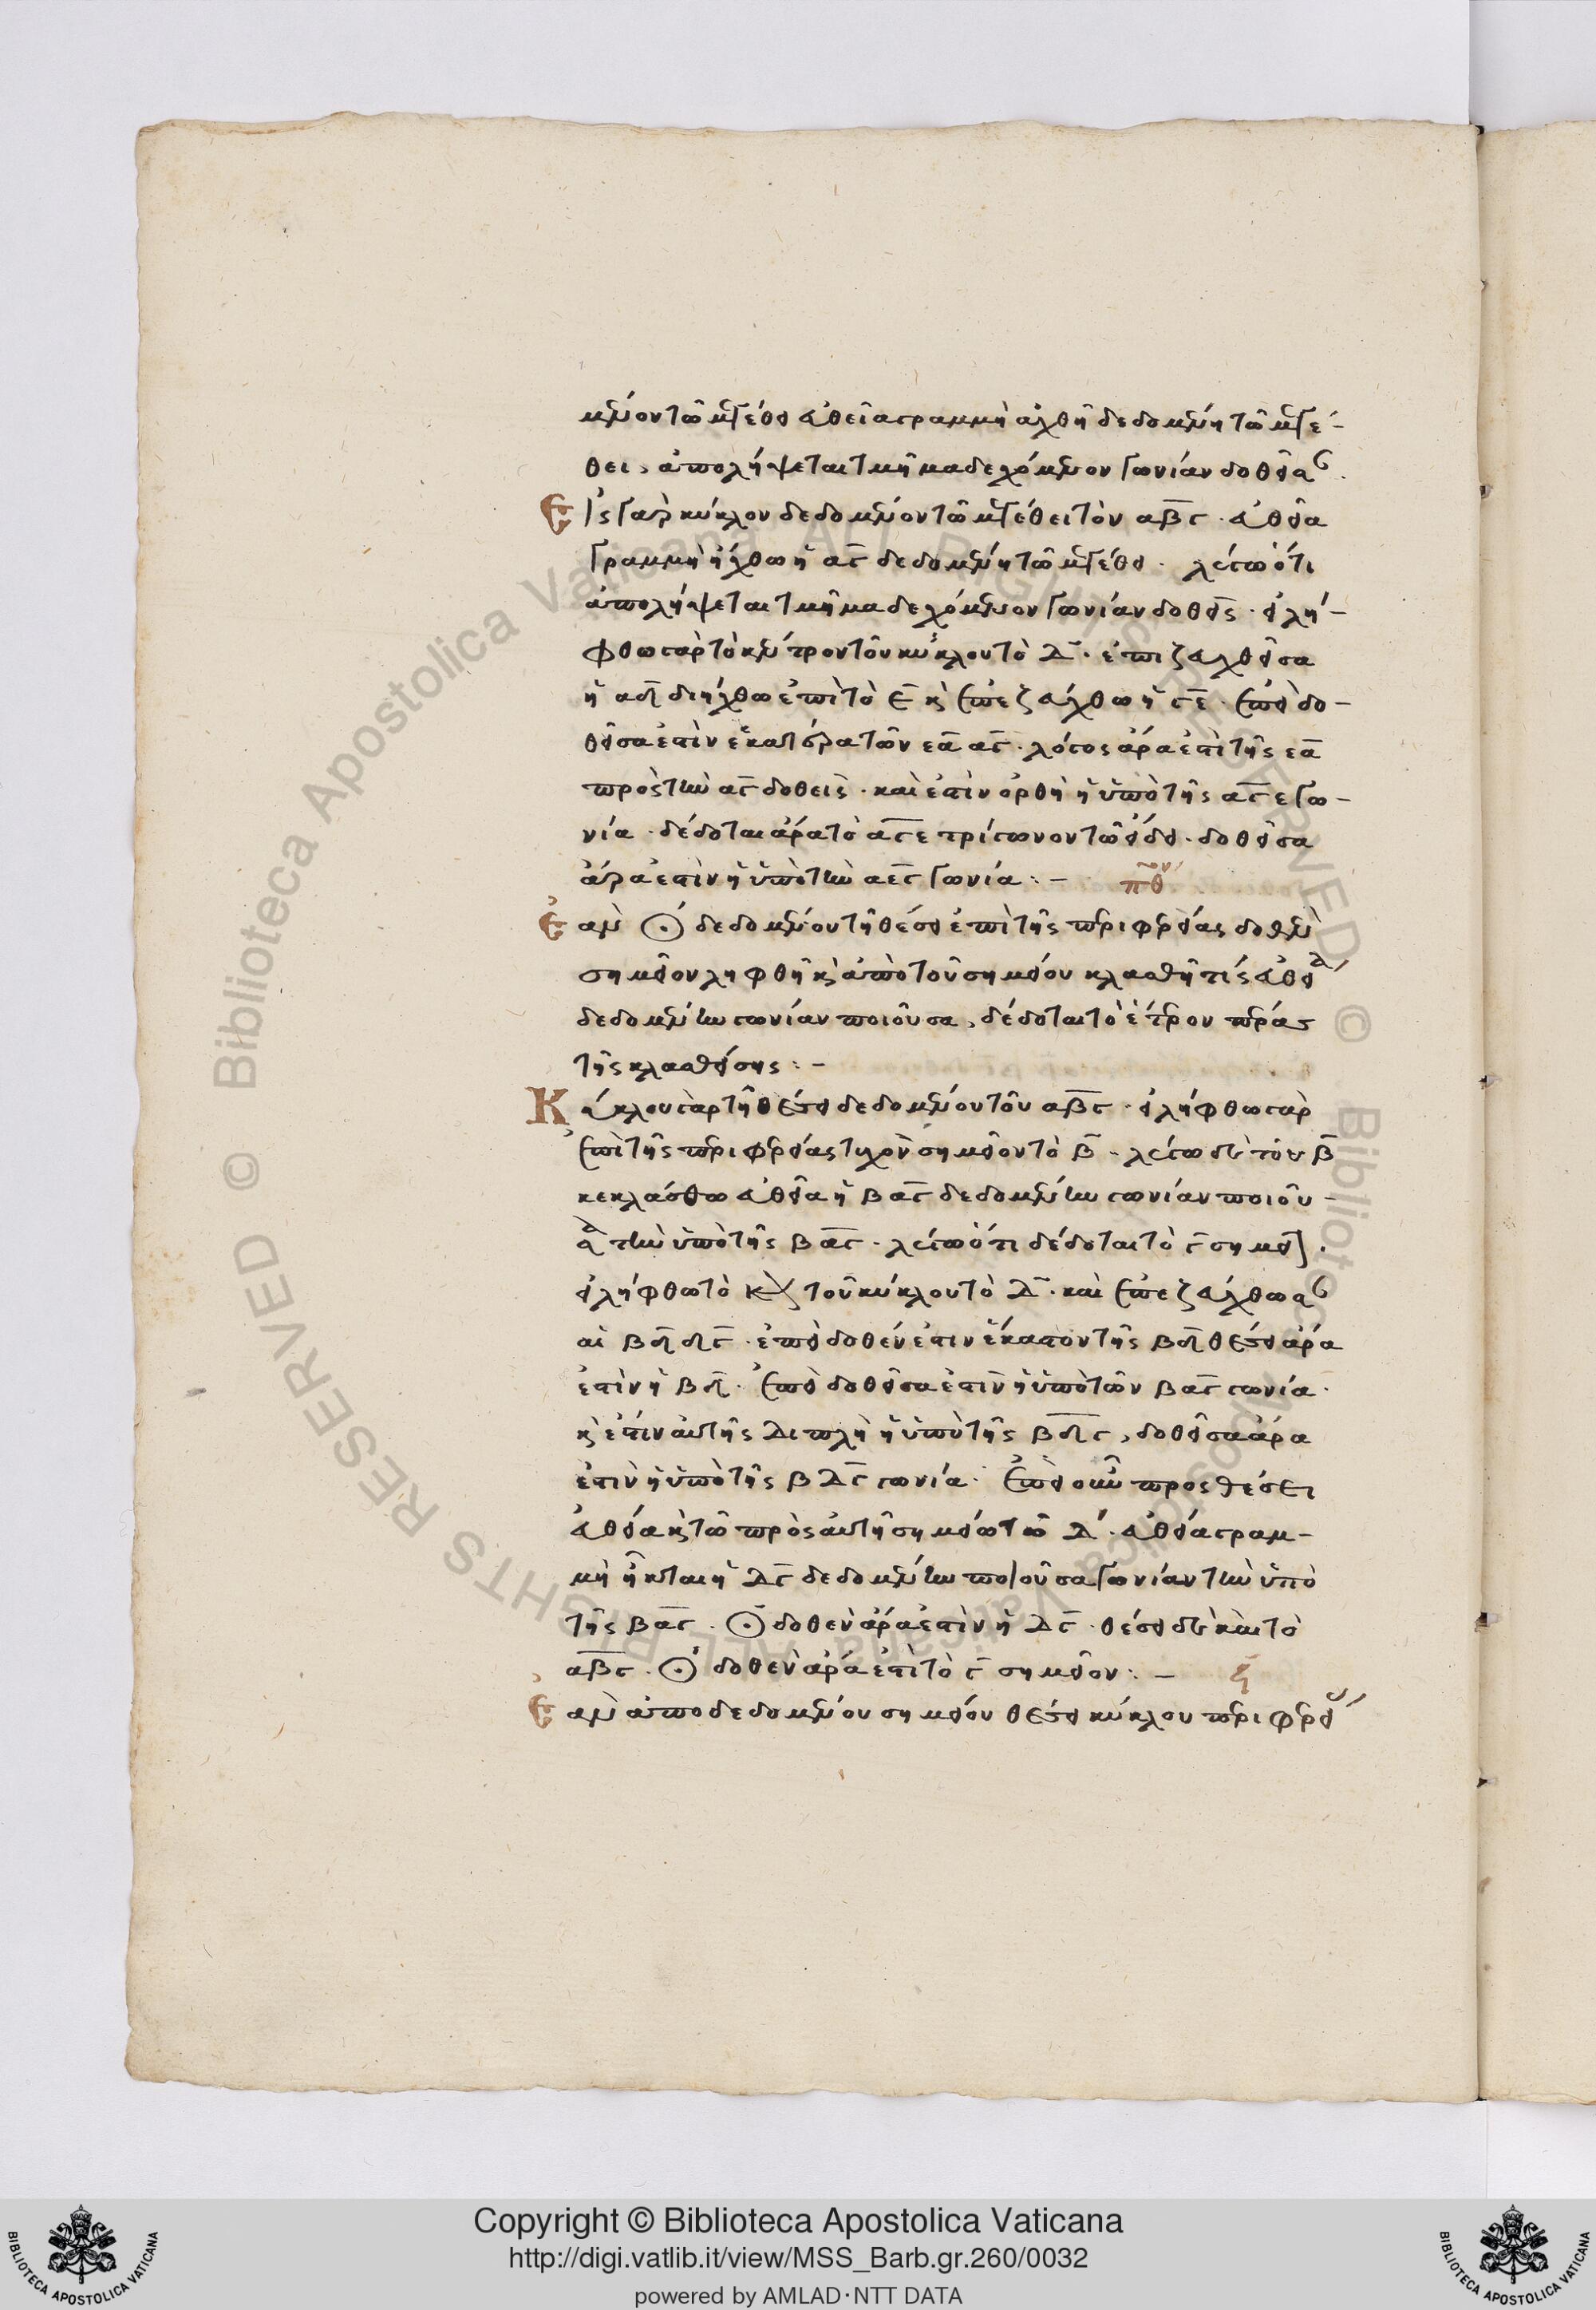 μένον τῶ μεγέθει εὐθεῖα γραμμὴ ἀχθῆ δεδομένη τῶ μεγέ-
θει, ἀπολήψεται τμῆμα δεχόμενον γωνίαν δοθεῖσαν.
Εἰς γὰρ κύκλον δεδομένον τῶ μεγέθει τὸν αβγ. εὐθεῖα
γραμμὴ ἤχθω ἡ αγ δεδομένη τῶ μεγέθει. λέγω ὅτι
ἀπολήψεται τμῆμα δεχόμενον γωνίαν δοθεῖσαν. εἰλή-
φθω γὰρ τὸ κέντρον τοῦ κύκλου τὸ δ. ἐπιζευχθεῖσα
ἡ αδ διήχθω ἐπὶ τὸ ε καὶ ἐπεζεύχθω ἡ γε. ἐπεὶ δο-
θεῖσα ἐστὶν ἑκατέρα τῶν εα αγ. λόγος ἄρα ἐστὶ τῆς εα
πρὸς τὴν αγ δοθείς. καὶ ἐστὶν ὀρθὴ ἡ ὑπὸ τῆς αγε γω-
νία. δέδοται ἄρα τὸ αγε τρίγωνον τῶ εἴδει. δοθεῖσα
ἄρα ἐστὶν ἡ ὑπὸ τὴν αεγ γωνία:- πθον
Ἐὰν ⊙ δεδομένου τῆ θέσει ἐπὶ τῆς περιφερείας δοθὲν
σημεῖον ληφθῆ καὶ ἀπὸ τοῦ σημείου κλασθῆ τίς εὐθεῖα
δεδομένην γωνίαν ποιοῦσα, δέδοται τὸ ἕτερον πέρας
τῆς κλασθείσης:-
Κύκλου γὰρ τῆ θέσει δεδομένου τοῦ αβγ. εἰλήφθω γὰρ
ἐπὶ τῆς περιφερείας τυχὸν σημεῖον τὸ β. λέγω δὲ τὸ β
κεκλάσθω εὐθεῖα ἡ βαγ δεδομένην γωνίαν ποιοῦ-
σα τὴν ὑπὸ τῆς βαγ. λέγω ὅτι δέδοται τὸ γ σημεῖον.
εἰλήφθω τὸ κέντρον τοῦ κύκλου τὸ δ. καὶ ἐπεζεύχθωσαν
αἱ βδ δγ. ἐπεὶ δοθέν ἐστιν ἑκάτερον τῆς βδ θέσει ἄρα
ἐστὶν ἡ βδ. ἐπεὶ δοθεῖσα ἐστὶν ἡ ὑπὸ τῶν βαγ γωνία.
καὶ ἐστὶν αὐτῆς διπλῆ ἡ ὑπὸ τῆς βδγ, δοθεῖσα ἄρα
ἐστὶν ἡ ὑπὸ τῆς βδγ γωνία. Ἐπεὶ οὖν πρὸς θέσει
εὐθεία καὶ τῶ πρὸς αὐτῆ σημείω τῶ δ. εὐθεία γραμ-
μὴ ἦκται ἡ δγ δεδομένην ποιοῦσα γωνίαν τὴν ὑπὸ
τῆς βαγ. ⊙ δοθεν ἄρα ἐστὶν ἡ δγ. θέσει δὲ καὶ τὸ
αβγ. ⊙ δοθὲν ἄρα ἐστὶ τὸ γ σημεῖον:- ϟ
Ἐὰν ἀπὸ δεδομένου σημείου θέσει κύκλου περιφερεί